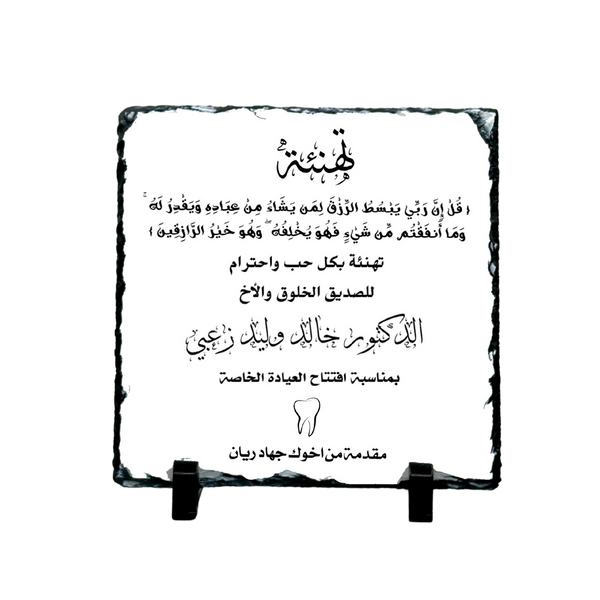 تهنئة
﴿ قُلْ إِنَّ رَبِّي يَبْسُطُ الرِّزْقَ لِمَن يَشَاءُ مِنْ عِبَادِهِ وَيَقْدِرُ لَهُ ۚ
وَمَا أَنفَقْتُم مِّن شَيْءٍ فَهُوَ يُخْلِفُهُ ۖ وَهُوَ خَيْرُ الرَّازِقِينَ ﴾
تهنئة بكل حب واحترام
للصديق الخلوق والأخ
الدكتور خالد وليد زعبي
بمناسبة افتتاح العيادة الخاصة
مقدمة من اخوك جهاد ريان